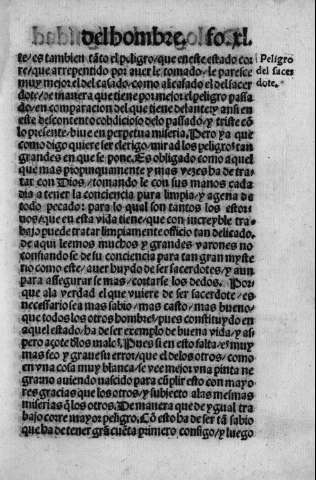 del hombre. fo.xl.
te/es tambien tãto el peligro/que en este estado cor
re/que arrepentido por auer le tomado/le paresce
muy mejor el del casado, como al casado el del sacer
dote/de manera que tiene por mejor el peligro passa
do/en comparacion del que tiene delante y ansi en
este descontento cobdicioso delo passado/y triste cõ
lo presente/biue en perpetua miseria. Pero ya que
como digo quiere ser clerigo/mirad los peligros tan
grandes en que se pone. Es obligado como aquel
que mas propinquamente y mas vezes ha de tra-
tar con Dios/tomando le con sus manos cada
dia a tener la conciencia pura limpia/y agena de
todo pecado: para lo qual son tantos los estor-
uos/que en esta vida tiene/que con increyble tra-
bajo puede tratar limpiamente officio tan delicado.
de aqui leemos muchos y grandes varones no
confiando se de su conciencia para tan gran myste
rio como este/auer huydo de ser sacerdotes/y aun
para assegurar se mas/cortarse los dedos. Por-
que ala verdad el que vuiere de ser sacerdote/es
necessario sea mas sabio/mas casto/mas bueno/
que todos los otros hombres/pues constituydo en
aquel estado/ha de ser exemplo de buena vida/y as-
pero açote dlos malos. Pues si en esto falta/es muy
mas feo y graue su error/que el delos otros/como
en vna cosa muy blanca/se vee mejor vna pinta ne
gra/no auiendo nascido para cũplir esto con mayo
res gracias que los otros/y subjecto alas mesmas
miserias q̃ los otros. De manera que de ygual tra
bajo corre mayor peligro. Cõ esto ha de ser tã sabio
que ha de tener grã cuenta primero consigo/y luego
Peligro
del sacer
dote.